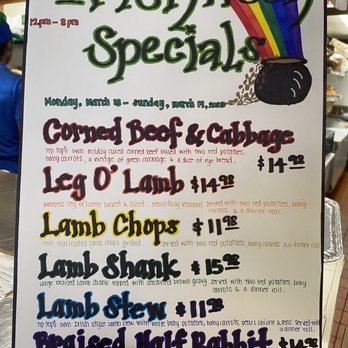 12pm - 8pm
Specials
Monday, march 13 - Sunday, march 19, 2023
Corned Beef & Cabbage $14.98
tip top's own mildly cured corned beef boiled with two red potatoes, baby carrots, a wedge of green cabbage & a slice of rye bread.
Leg O' Lamb $14.98
boneless leg of lamb baked & sliced ... beautifully seasoned. served with two red potatoes, baby carrots & a dinner roll.
Lamb Chops $11.98
two marinated lamb chops grilled served with two red potatoes, baby carrots & a dinner roll.
Lamb Shank $15.98
large braised lamb shank topped with seasoned brown gravy. served with two red potatoes, baby carrots & a dinner roll.
Lamb Stew $11.98
tip top's own Irish style lamb stew with whole baby potatoes, baby carrots, pearl onions & peas. served with a dinner roll.
Braised Half Rabbit